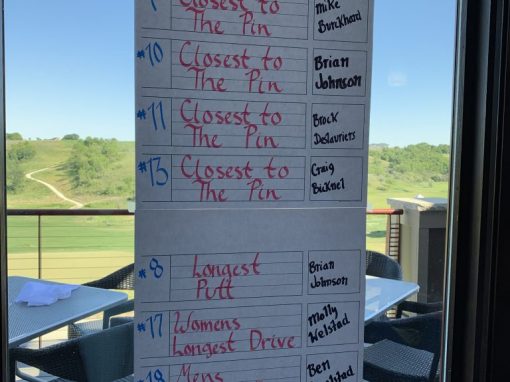 Closest to Mike
The Pin Burckhard
#10 Closest to Brian
The Pin Johnson
#11 Closest to Brock
The Pin Deslauriers
#13 Closest to Craig
The Pin Bicknel
#8 Longest Brian
Putt Johnson
#17 Womens Molly
Longest Drive Welstad
#18 Mens Ben